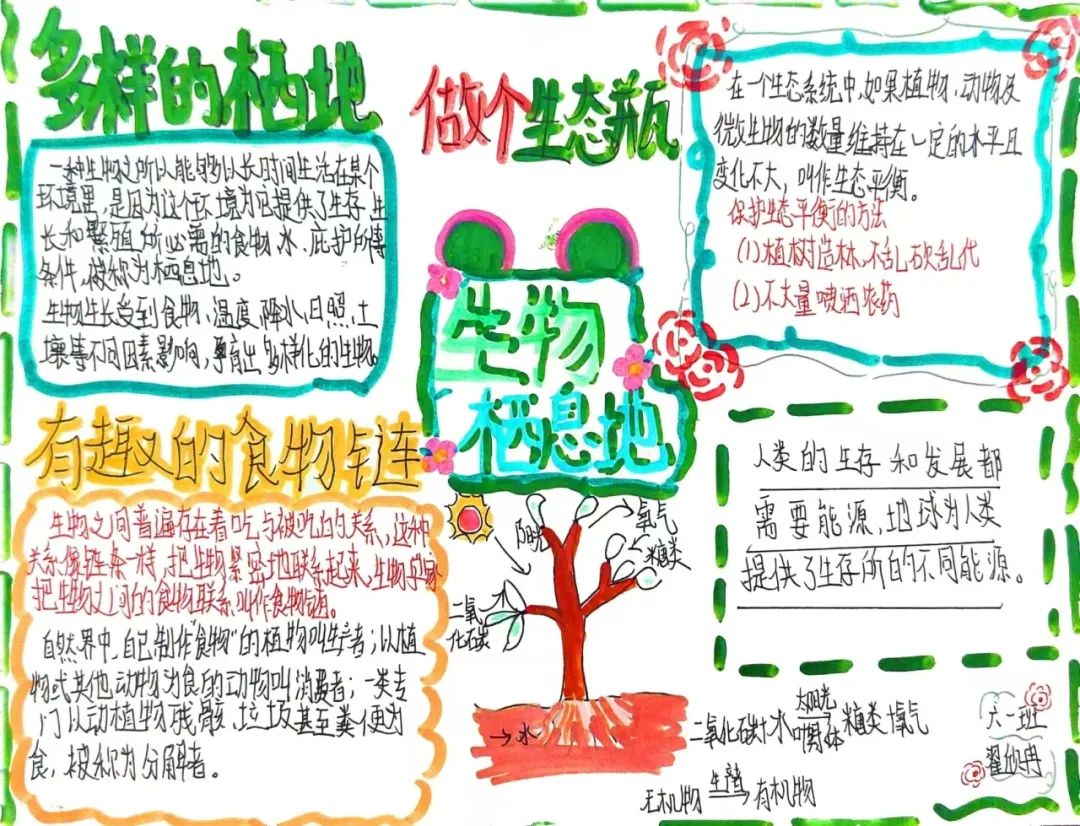 多样的栖地
一种生物之所以能够以长时间生活在某个
环境里,是因为这个环境为它提供了生存、生
长和繁殖所必需的食物、水、庇护所等
条件,被称为栖息地。
生物生长受到食物、温度、降水、日照、土
壤等不同因素影响,孕育出多样化的生物。
有趣的食物链
生物之间普遍存在着吃与被吃的关系,这种
关系像链条一样,把生物紧密地联系起来,生物学家
把生物之间的食物联系叫作食物链。
自然界中,自己制作"食物"的植物叫生产者;以植
物或其他动物为食的动物叫消费者;一类专
门以动植物残骸、垃圾甚至粪便为
食,被称为分解者。
做个生态瓶
生物
栖息地
阳光
氧气
糖类
水
二氧
化碳
→水
在一个生态系统中,如果植物、动物及
微生物的数量维持在一定的水平且
变化不大,叫作生态平衡。
保护生态平衡的方法
(1)植树造林,不乱砍乱伐
(2)不大量喷洒农药
人类的生存和发展都
需要能源,地球为人类
提供了生存所的不同能源。
二氧化碳+水 太阳光 叶绿体 糖类+氧气
无机物 生产者 有机物
六一班